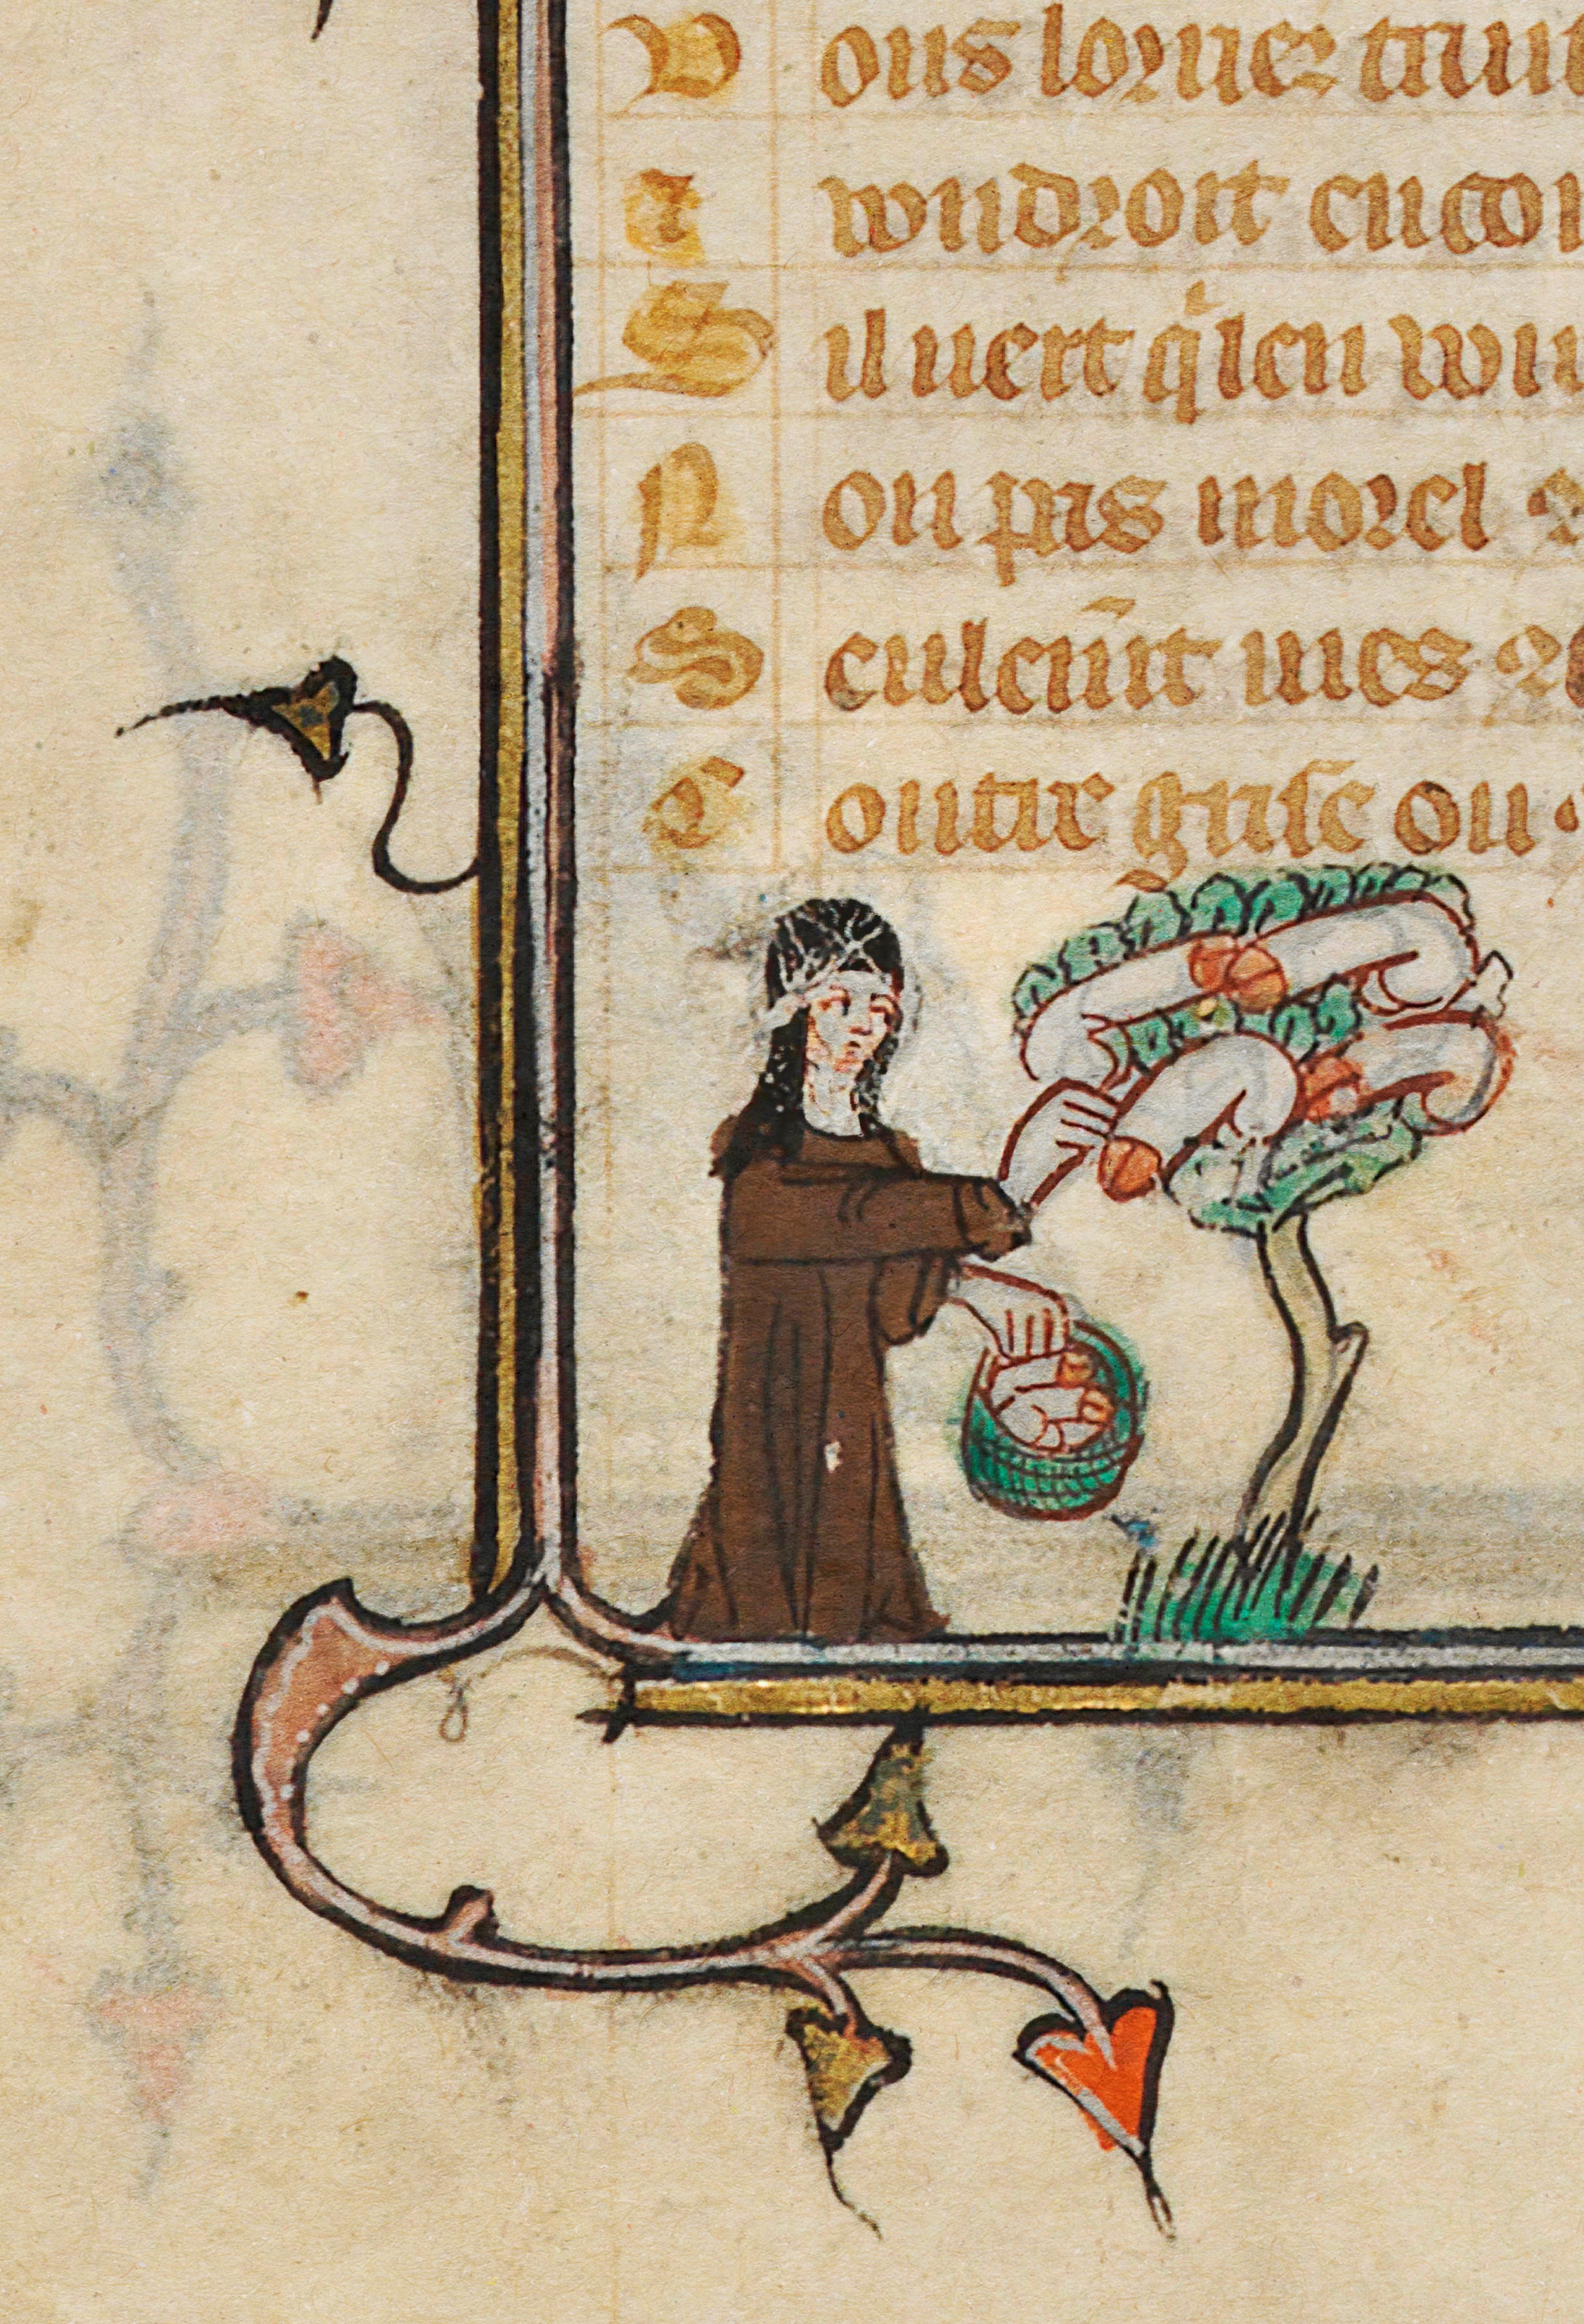 V ous lorriez tant
T oudroit encor
S il uert q̓len vou
N on pas morel ⁊
S eulem̄t mes ⁊
C outre guise ou